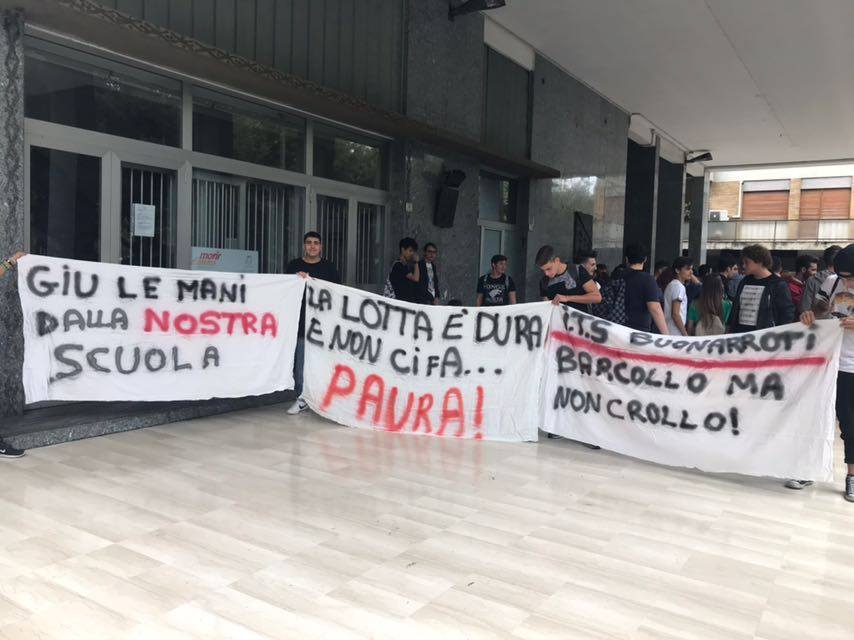 GIU LE MANI
DALLA NOSTRA
SCUOLA
LA LOTTA È DURA
E NON CI FA...
PAURA!
I.T.S BUONARROTI
BARCOLLO MA
NON CROLLO!